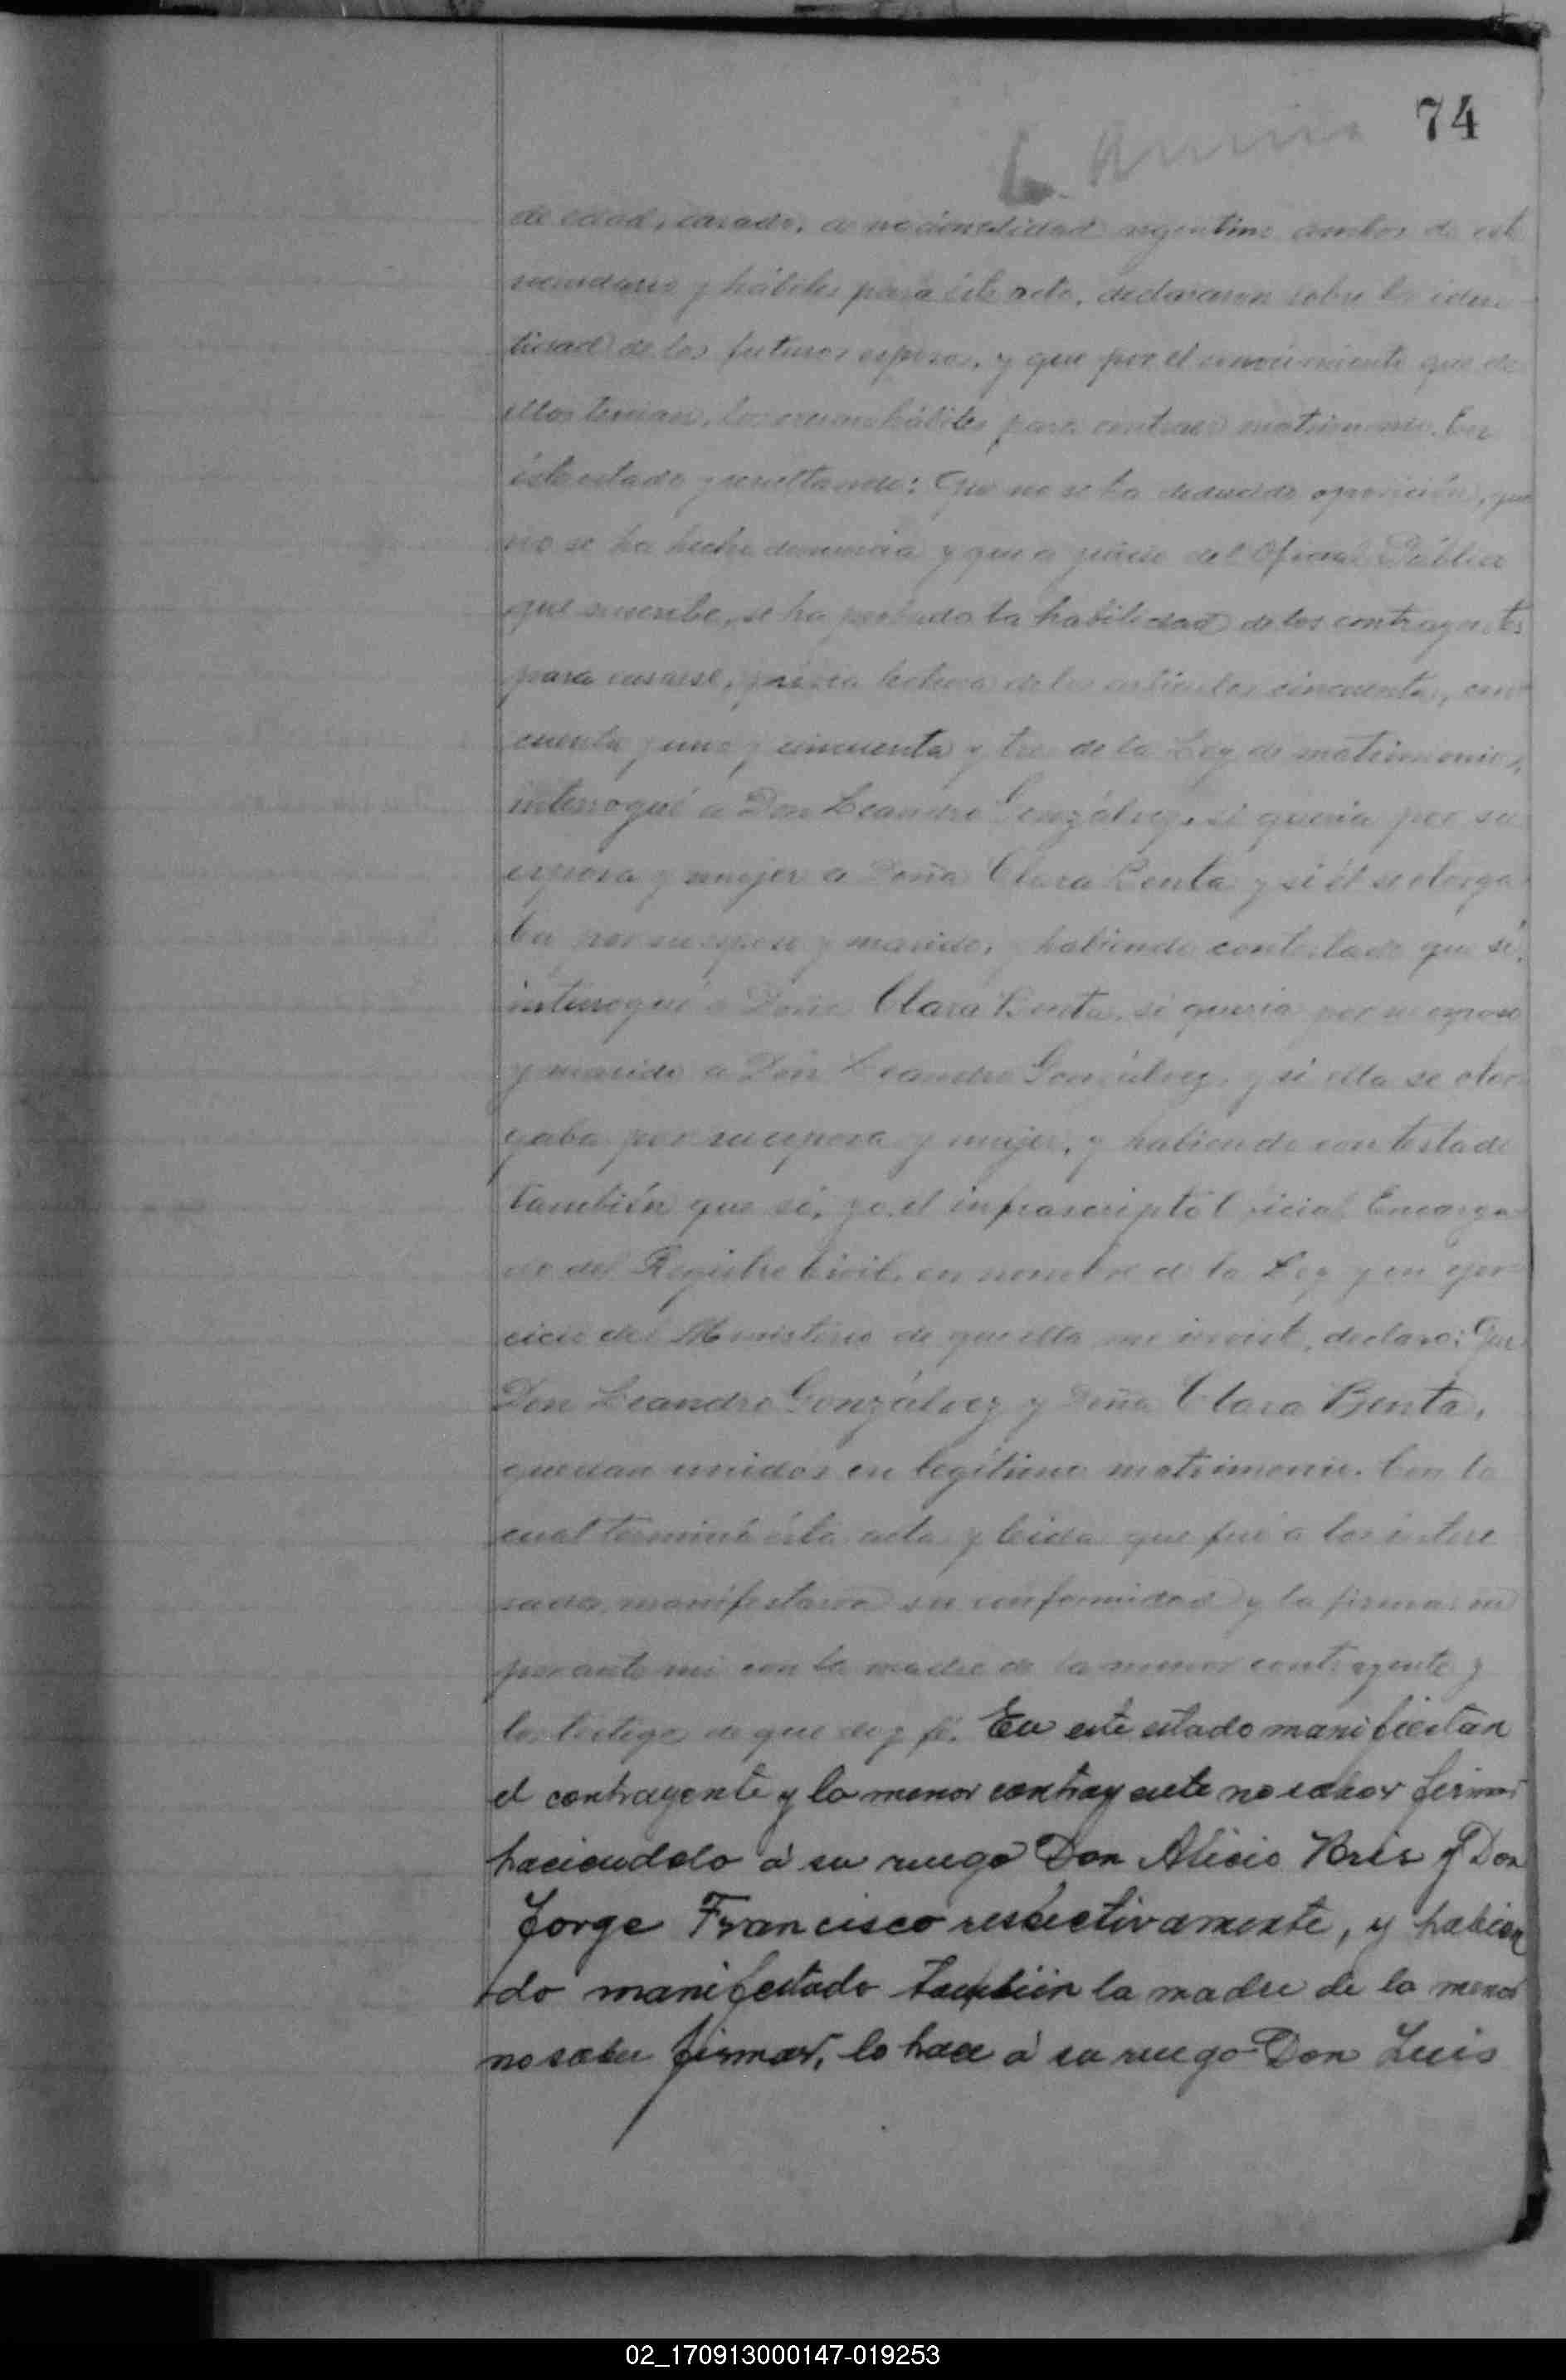 74
de edad, casado, de nacionalidad argentino ambos de este
vecindario y hábiles para éste acto, declararon sobre la iden-
tidad de los futuros esposos, y que por el conocimiento que de
ellos tenian, los creian hábiles para contraer matrimonio. En
éste estado y resultando: Que no se ha deducido oposición, que
no se ha hecho denuncia y que a juicio del Oficial Público
que suscribe, se ha probado la habilidad de los contrayentes
para casarse, prévia lectura de los artículos cincuenta, cin-
cuenta y uno y cincuenta y tres de la Ley de matrimonios,
interrogué a Don Leandro Gonzálvez, si queria por su
esposa y mujer a Doña Clara Benta y si él se otorga
ba por su esposo y marido, y habiendo contestado que sí,
interrogué a Doña Clara Benta, si queria por su esposo
y marido a Don Leandro Gonzálvez y si ella se otor
gaba por su esposa y mujer, y habiendo contestado
también que sí, yo el infrascripto Oficial Encarga
do del Registro Civil, en nombre de la Ley y en ejer
cicio del Ministerio de que ella me inviste, declaro: Que
Don Leandro Gonzálvez y Doña Clara Benta,
quedan unidos en legítimo matrimonio. Con lo
cual terminó ésta acta y leida que fué a los intere
sados, manifestaron su conformidad y la firmaron
por ante mi con la madre de la menor contrayente y
los testigos de que doy fé. En este estado manifiestan
el contrayente y la menor contrayente no saber firmar
haciendolo á su ruego Don Alicio Bris y Don
Jorge Francisco respectivamente, y habien
do manifestado tambien la madre de la menor
no saber firmar, lo hace á su ruego Don Luis
02_170913000147-019253